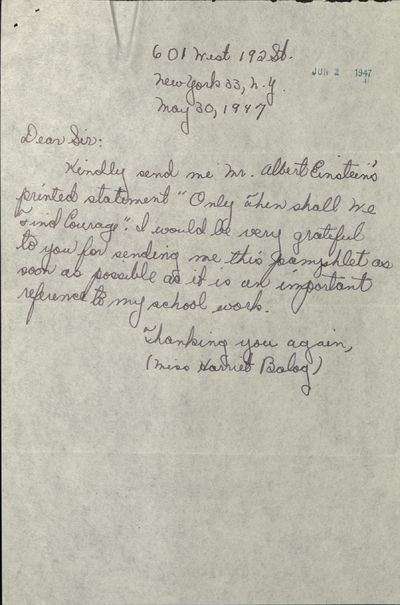 601 West 192 St.
JUN 2 1947
New York 33, N.Y.
May 30, 1947
Dear Sir:
Kindly send me Mr. Albert Einstein's
printed statement "Only Then shall We
Find Courage". I would be very grateful
to you for sending me this pamphlet as
soon as possible as it is an important
reference to my school work.
Thanking you again,
(Miss Harriet Balog)